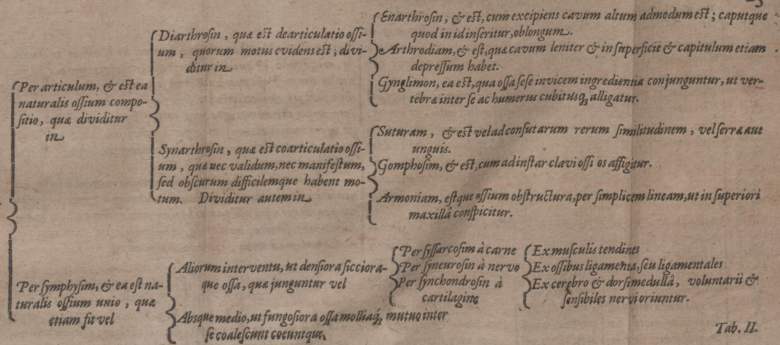 Per articulum, & est ea
naturalis ossium compo-
sitio, quæ dividitur
in
Diarthrosin, quæ est dearticulatio ossi-
um, quorum motus evidens est; divi-
ditur in
Enarthrosin, & est, cum excipiens cavum altum admodum est; caputque
quod in id inseritur, oblongum.
Arthrodiam, & est, quæ cavum leniter & in superficie & capitulum etiam
depressum habet.
Gynglimon, ea est, qua ossa sese invicem ingredientia conjunguntur, ut ver-
tebræ inter se ac humerus cubitusq; alligatur.
Synarthrosin, quæ est coarticulatio ossi-
um, quæ nec validum, nec manifestum,
sed obscurum difficilemque habent mo-
tum. Dividitur autem in
Suturam, & est vel ad consutarum rerum similitudinem, vel serræ aut
unguis.
Gomphosim, & est, cum ad instar clavi ossi os affigitur.
Armoniam, estque ossium obstructura, per simplicem lineam, ut in superiori
maxillâ conspicitur.
Per symphysim, & ea est na-
turalis ossium unio, quæ
etiam fit vel
Aliorum interventu, ut densiora sicciora-
que ossa, quæ junguntur vel
Per syssarcosim à carne
Per syneurosin à nervo
Per synchondrosin à
cartilagine
Ex musculis tendines
Ex ossibus ligamenta, seu ligamentales
Ex cerebro & dorsi medullâ, voluntarii &
sensibiles nervi oriuntur.
Absque medio, ut fungosiora ossa molliaq; mutuo inter
se coalescunt coeuntque.
Tab. II.